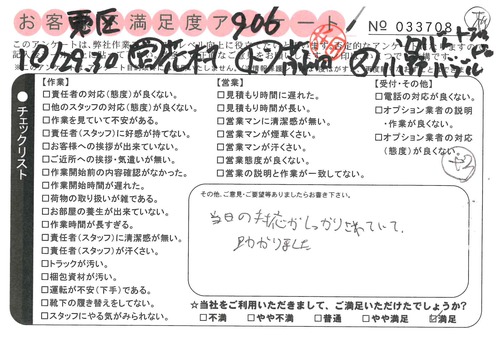 お客
東区
満足度ア
906
ケート
№ 033708
10/29.30
【作業】
□責任者の対応(態度)が良くない。
□他のスタッフの対応(態度)が良くない。
□作業を見ていて不安がある。
□責任者(スタッフ)に好感が持てない。
□お客様への挨拶が出来ていない。
□ご近所への挨拶・気遣いが無い。
□作業開始前の内容確認がなかった。
□作業開始時間が遅れた。
□荷物の取り扱いが雑である。
□お部屋の養生が出来ていない。
□作業時間が長すぎる。
□責任者(スタッフ)に清潔感が無い。
□責任者(スタッフ)が汗くさい。
□トラックが汚い。
□梱包資材が汚い。
□運転が不安(下手)である。
□靴下の履き替えをしてない。
□スタッフにやる気がみられない。
【営業】
□見積もり時間に遅れた。
□見積もり時間が長い。
□営業マンに清潔感が無い。
□営業マンが煙草くさい。
□営業マンが汗くさい。
□営業態度が良くない。
□営業の説明と作業が一致してない。
【受付・その他】
□電話の対応が良くない。
□オプション業者の説明
・作業が良くない。
□オプション業者の対応
(態度)が良くない。
チェックリスト
その他、ご意見・ご要望等ありましたらお書き下さい。
当日の対応がしっかりされていて、
助かりました
☆当社をご利用いただきまして、ご満足いただけたでしょうか?
□不満 □やや不満 □普通 □やや満足 ☑満足